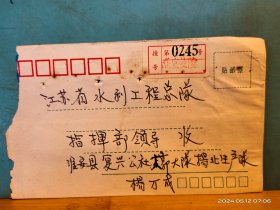 挂号 0245
贴邮票
江苏省水利工程总队
指挥部领导 收
淮安县复兴公社 大队 北生产队
杨万成
2024.05.12 07:06